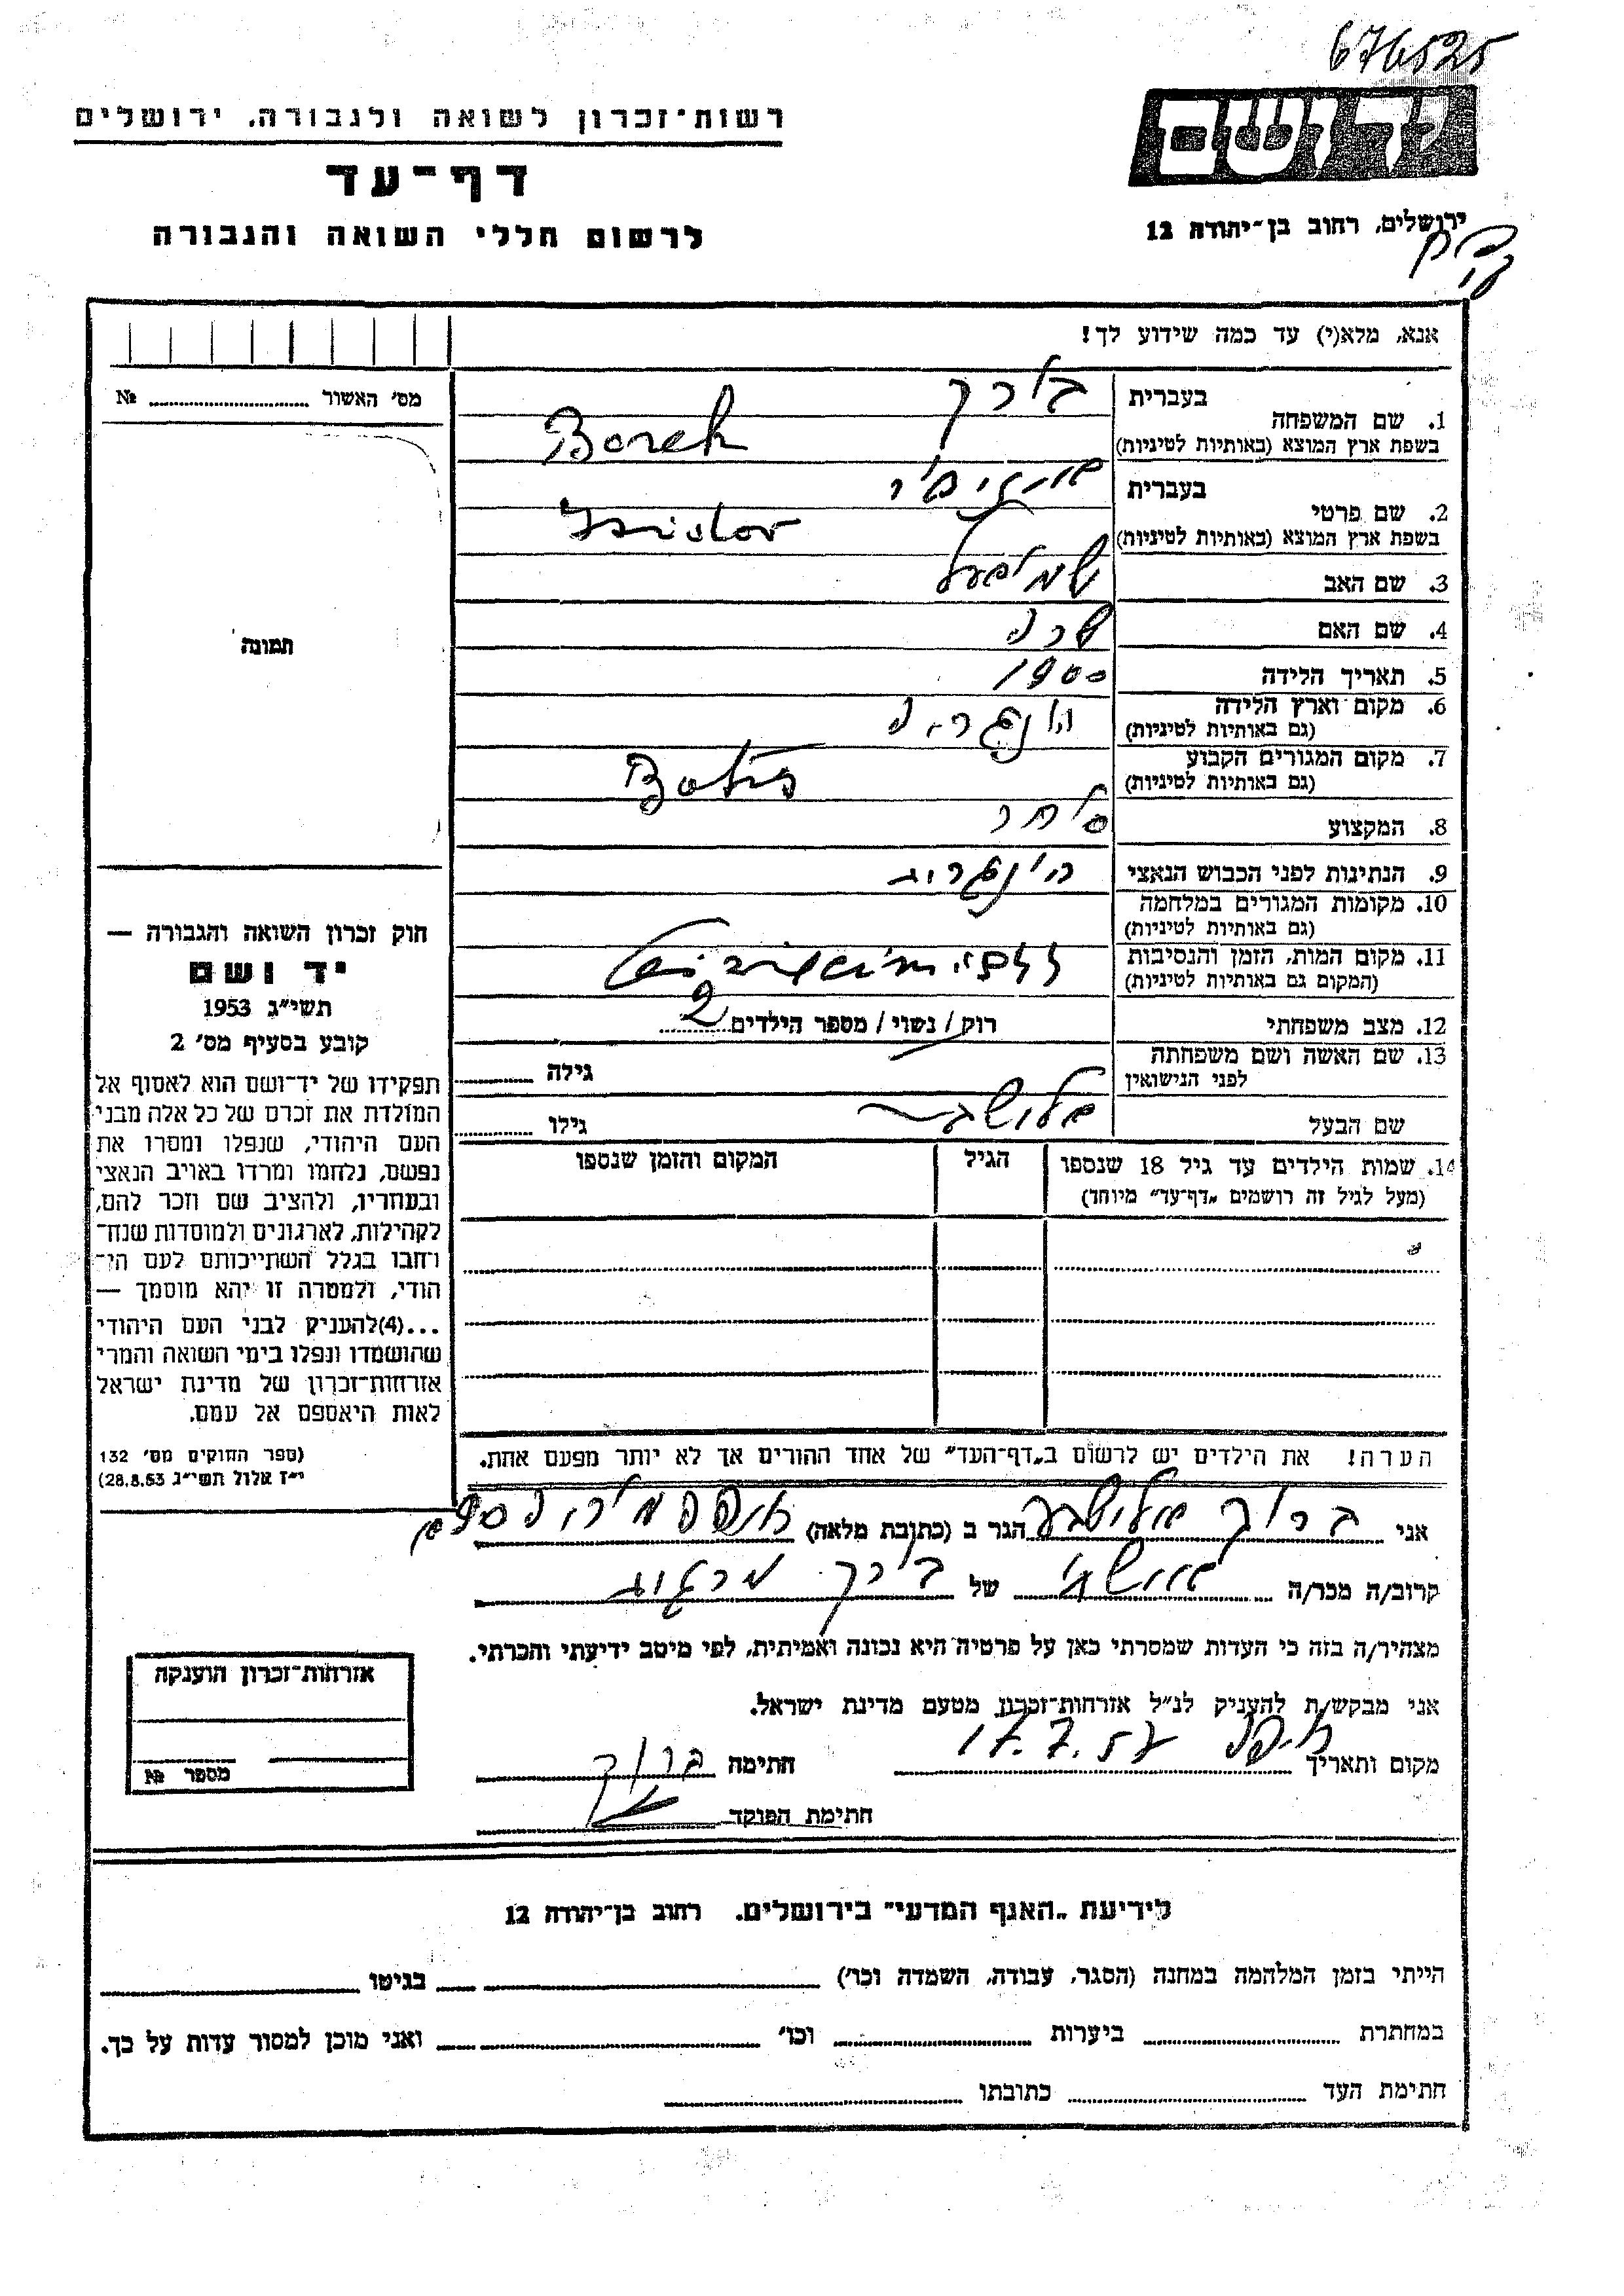 676525
רשות־זכרון לשואה ולגבורה, ירושלים
דף־עד
לרשום חללי השואה והגבורה
יד ושם
ירושלים, רחוב בן־יהודה 12
אנא, מלא(י) עד כמה שידוע לך!
מס׳ האשור № ........
תמונה
1. שם המשפחה בעברית בורך
בשפת ארץ המוצא (באותיות לטיניות) Borek
2. שם פרטי בעברית
בשפת ארץ המוצא (באותיות לטיניות) Isidor
3. שם האב שמואל
4. שם האם שרה
5. תאריך הלידה 1900
6. מקום וארץ הלידה הונגריה
(גם באותיות לטיניות)
7. מקום המגורים הקבוע
(גם באותיות לטיניות)
8. המקצוע סוחר
9. הנתינות לפני הכבוש הנאצי
10. מקומות המגורים במלחמה
(גם באותיות לטיניות)
11. מקום המות, הזמן והנסיבות
(המקום גם באותיות לטיניות)
12. מצב משפחתי רוק / נשוי / מספר הילדים 2
13. שם האשה ושם משפחתה
לפני הנישואין גילה ........
שם הבעל גילו ........
14. שמות הילדים עד גיל 18 שנספו
(מעל לגיל זה רושמים „דף־עד״ מיוחד)
הגיל
המקום והזמן שנספו
הערה! את הילדים יש לרשום ב„דף־העד״ של אחד ההורים אך לא יותר מפעם אחת.
חוק זכרון השואה והגבורה —
יד ושם
תשי״ג 1953
קובע בסעיף מס׳ 2
תפקידו של יד־ושם הוא לאסוף אל
המולדת את זכרם של כל אלה מבני
העם היהודי, שנפלו ומסרו את
נפשם, נלחמו ומרדו באויב הנאצי
ובעוזריו, ולהציב שם וזכר להם,
לקהילות, לארגונים ולמוסדות שנח־
רחבו בגלל השתייכותם לעם הי־
הודי, ולמטרה זו יהא מוסמך —
...(4)להעניק לבני העם היהודי
שהושמדו ונפלו בימי השואה והמרי
אזרחות־זכרון של מדינת ישראל
לאות היאספם אל עמם.
(ספר החוקים מס׳ 132
י״ז אלול תשי״ג 28.8.53)
אני ברוך אלישבע הגר ב (כתובת מלאה)
קרוב/ה מכר/ה של בורך
מצהיר/ה בזה כי העדות שמסרתי כאן על פרטיה היא נכונה ואמיתית, לפי מיטב ידיעתי והכרתי.
אני מבקש/ת להעניק לנ״ל אזרחות־זכרון מטעם מדינת ישראל.
מקום ותאריך חיפה 17.7.57 חתימה ברוך
חתימת הפוקד
אזרחות־זכרון הוענקה
מספר №
לידיעת „האגף המדעי״ בירושלים, רחוב בן־יהודה 12
הייתי בזמן המלחמה במחנה (הסגר, עבודה, השמדה וכו׳) בגיטו
במחתרת ביערות וכו׳ ואני מוכן למסור עדות על כך.
חתימת העד כתובתו